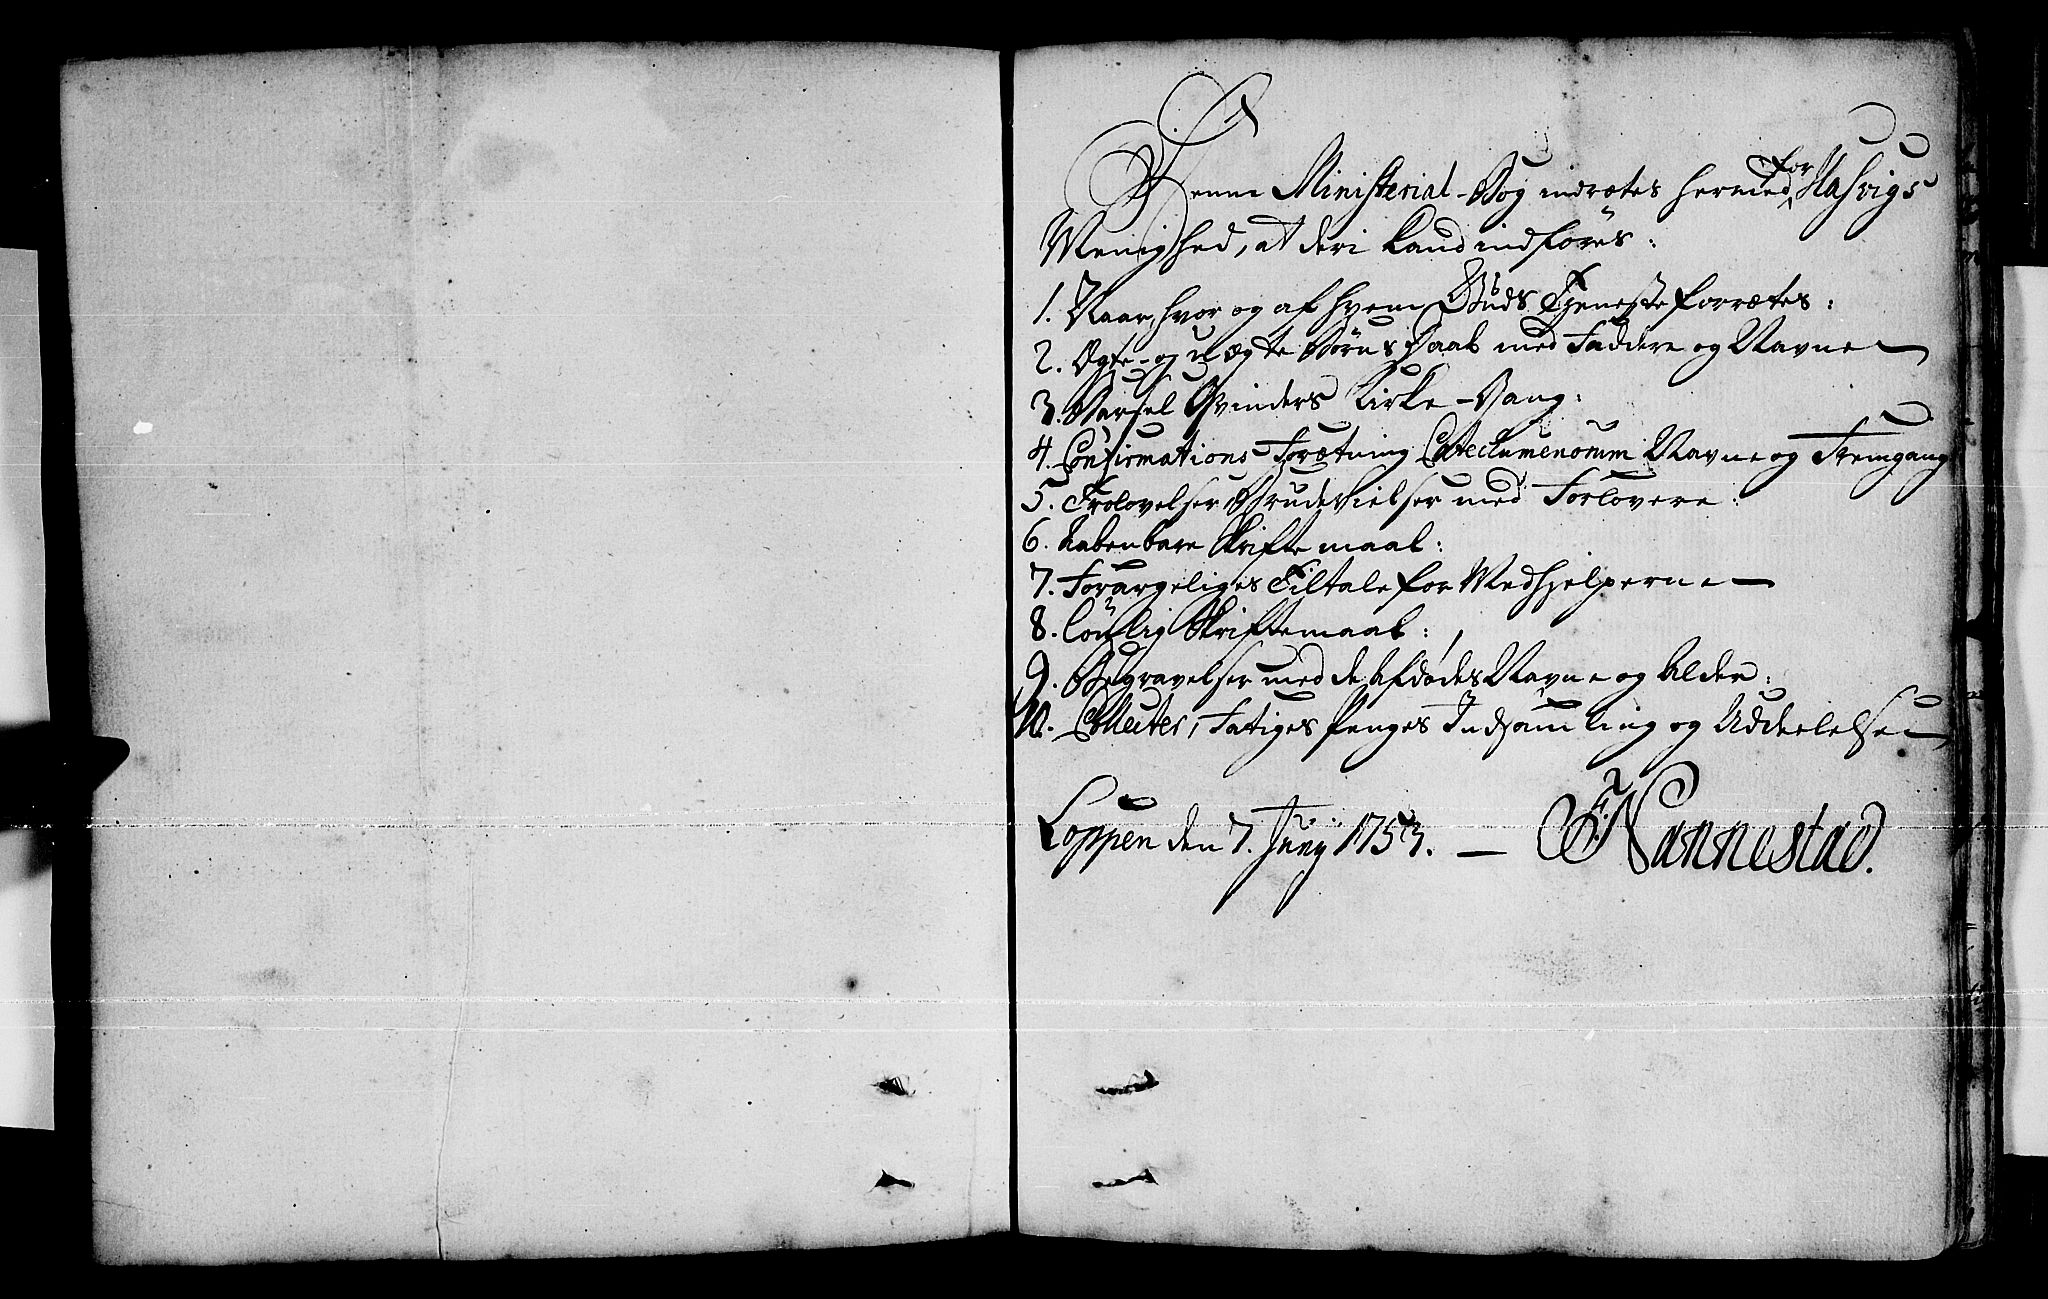 Denne Ministerial-Bog indrætes hermed for Hasvigs
Menighed, at deri kand indføres:
1. Naar, hvor og af hvem Guds Tjeneste forrætes:
2. Ægte- og uægte Børns Daab med Faddere og Navne
3. Barsel Qvinders Kirke-Gang:
4. Confirmations-Forrætning Catechumenorum Navne og Fremgang
5. Trolovelser Brudevielser med Forlovere:
6. Aabenbare Skriftemaal:
7. Forargeliges Tiltale for Medhjelperne
8. Lønlig Skriftemaal:
9. Begravelser med de Afdødes Navne og Alder:
10. Collecter, Fatiges Penges Indsamling og Uddeelelse
Loppen den 7. Juny 1753. — F: Nannestad.